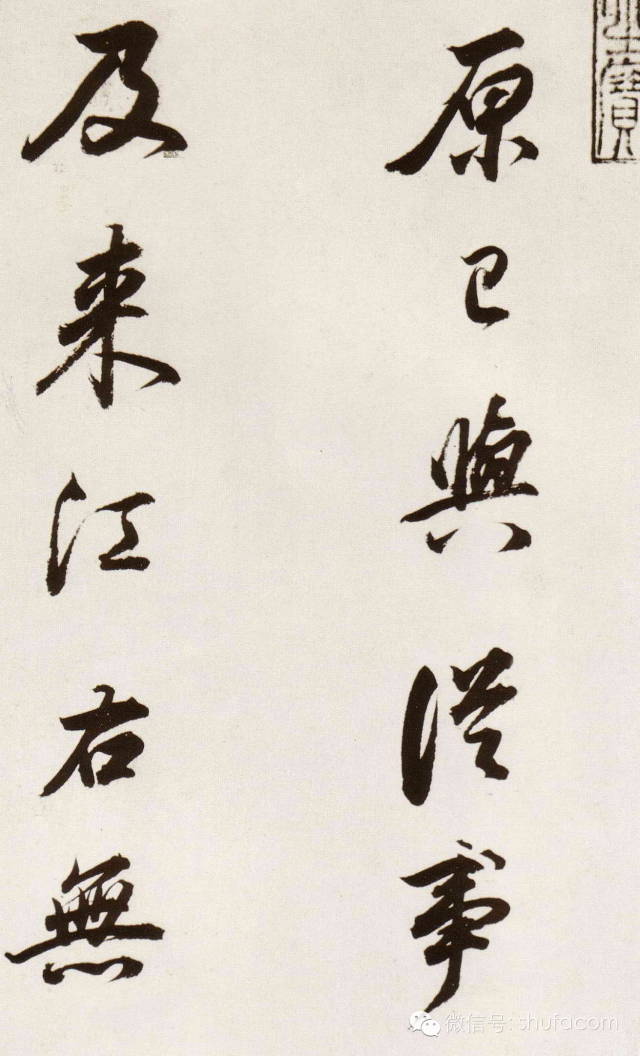 原已與從事
及来江右無
微信号: shufacom